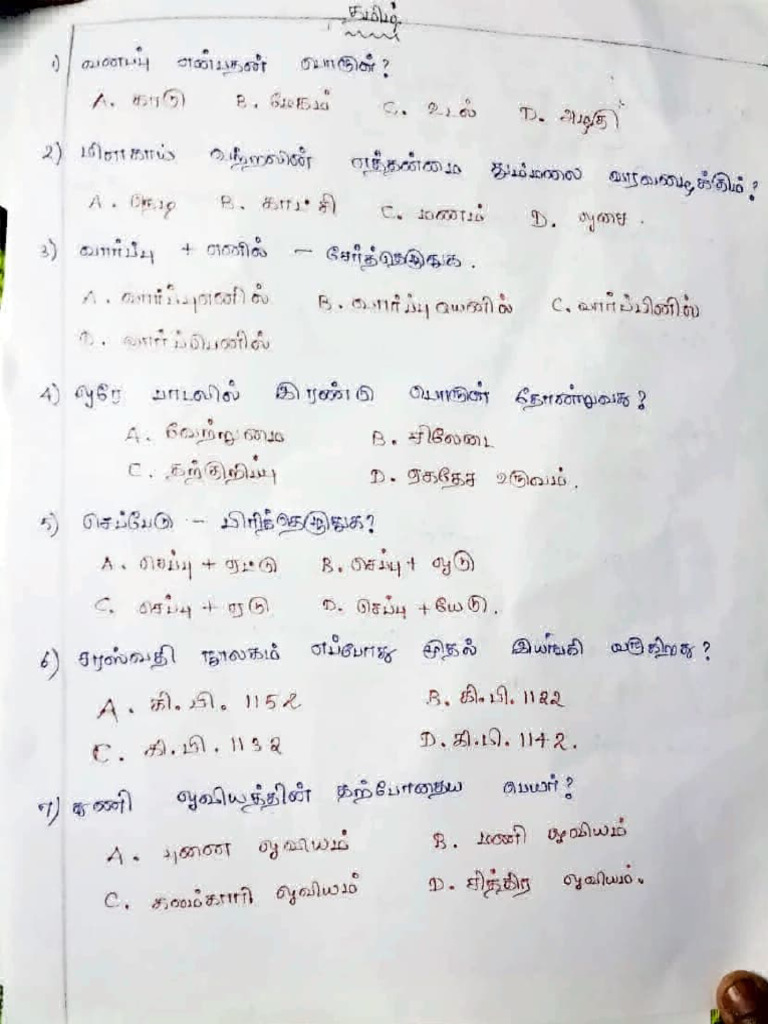 தமிழ்
1) வனப்பு என்பதன் பொருள்?
A. காடு B. மேகம் C. உடல் D. அழகு
2) மிளகாய் வற்றலின் தும்மலை வரவழைக்கும்?
A. நெடி B. காட்சி C. மணம் D. ஓசை.
3) வார்ப்பு + எனில் - சேர்த்தெழுதுக.
A. வார்ப்புஎனில் B. வார்ப்புயெனில் C. வார்ப்பினில்
D. வார்ப்பெனில்
4) ஒரே பாடலில் இரண்டு பொருள் தோன்றுவது?
A. வேற்றுமை B. சிலேடை
C. தற்குறிப்பு D. ஏகதேச உருவம்.
5) செப்பேடு - பிரித்தெழுதுக?
A. செப்பு + ஏட்டு B. செப்பு + ஓடு
C. செப்பு + ஏடு D. செப்பு + யேடு.
6) சரஸ்வதி நூலகம் எப்போது முதல் இயங்கி வருகிறது?
A. கி.பி. 1152 B. கி.பி. 1122
C. கி.பி. 1132 D. கி.பி. 1142.
7) துணி ஓவியத்தின் தற்போதைய பெயர்?
A. புனை ஓவியம் B. மணி ஓவியம்
C. கலம்காரி ஓவியம் D. சித்திர ஓவியம்.